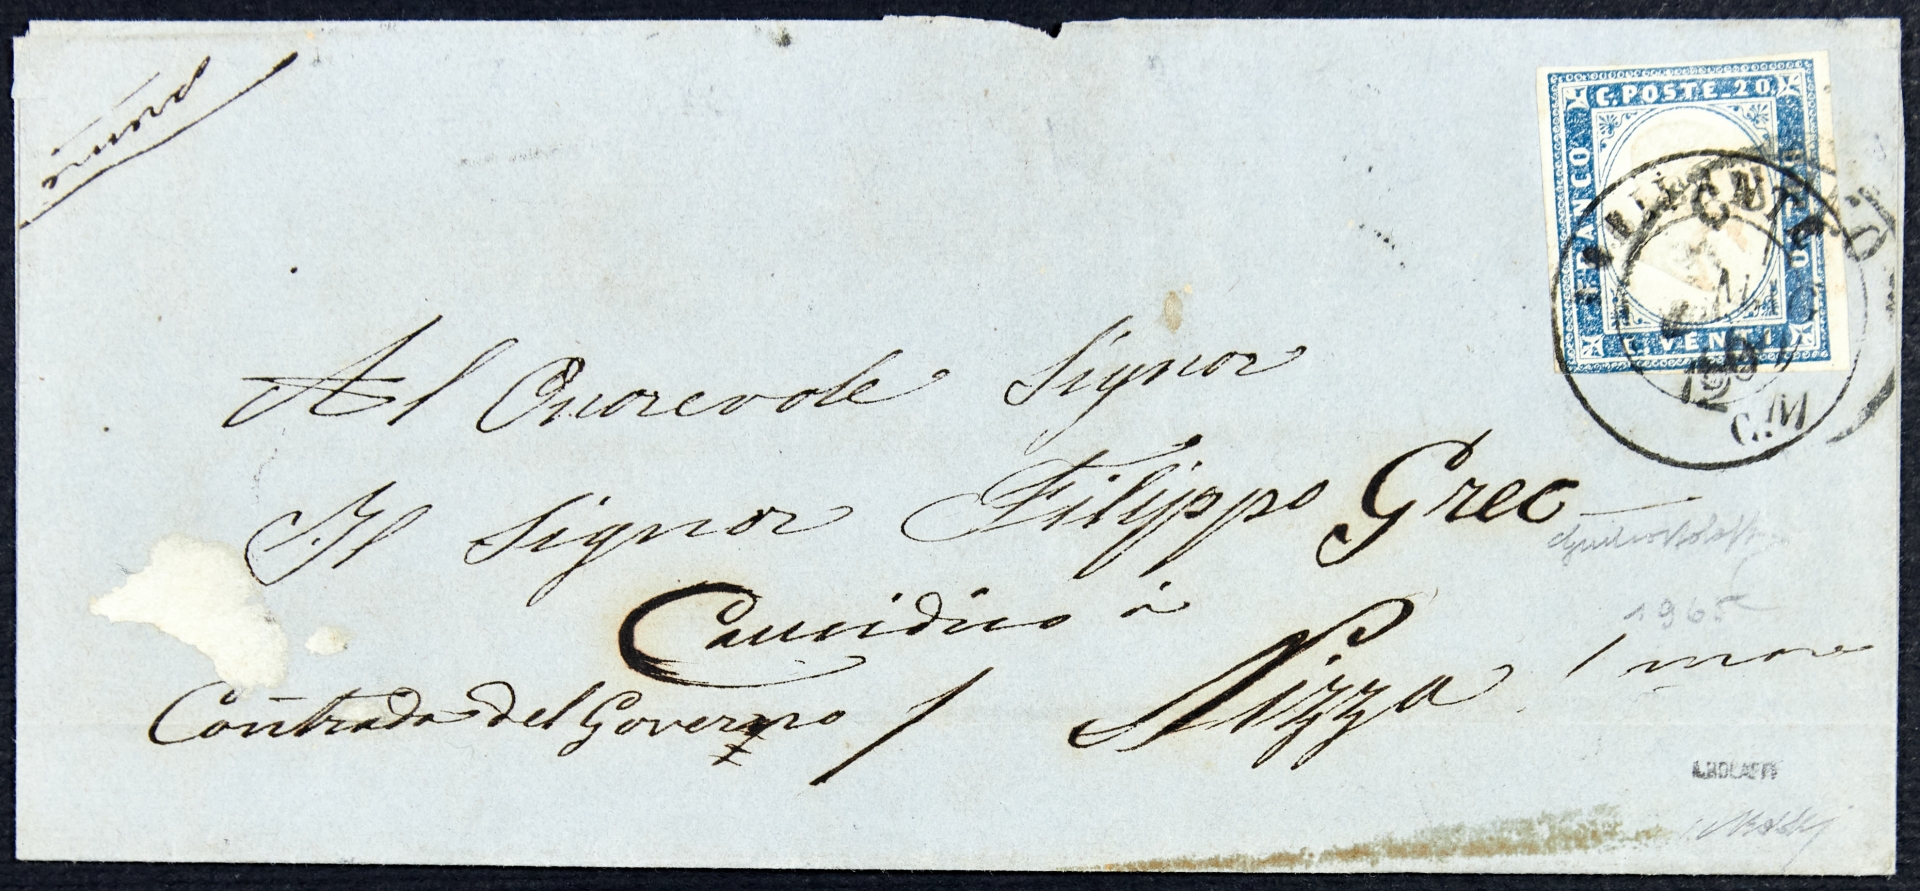 C. POSTE. 20
FRANCO
BOLLO
C. VENTI
C.M
Al Onorevole Signor
Il Signor Filippo Grec
Causidico à
Contrada del Governo / Nizza / mare
1965
A. BOLAFFI